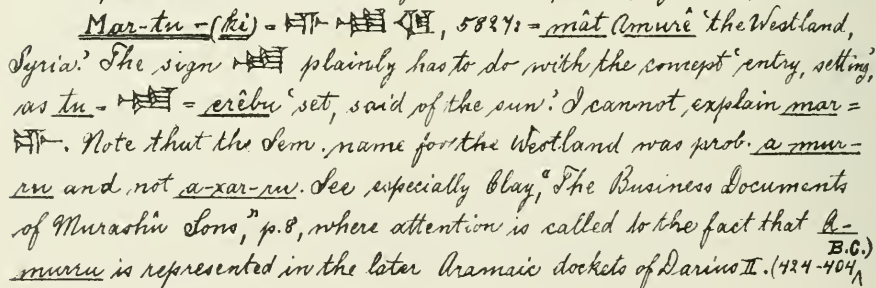 Mar-tu-(ki) = 𒈥 𒌅 𒆠, 5827: = mât Amurê 'the Westland,
Syria.' The sign 𒌅 plainly has to do with the concept 'entry, setting,'
as tu = 𒌅 = erêbu 'set, said of the sun.' I cannot explain mar =
𒈥. Note that the Sem. name for the Westland was prob. a mur-
ru and not a-xar-ru. See especially Clay, "The Business Documents
of Murashû Sons," p. 8, where attention is called to the fact that A-
murru is represented in the later Aramaic dockets of Darius II. (424-404 B.C.)